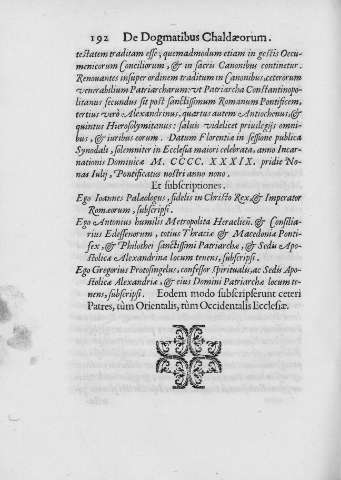 192 De Dogmatibus Chaldæorum.
testatem traditam esse; quemadmodum etiam in gestis Oecu-
menicorum Conciliorum, & in sacris Canonibus continetur.
Renouantes insuper ordinem traditum in Canonibus, ceterorum
venerabilium Patriarcharum: vt Patriarcha Constantinopo-
litanus secundus sit post sanctissimum Romanum Pontificem,
tertius verò Alexandrinus, quartus autem Antiochenus; &
quintus Hierosolymitanus: saluis videlicet priuilegijs omni-
bus, & iuribus eorum. Datum Florentiæ in sessione publica
Synodali, solemniter in Ecclesia maiori celebrata, anno Incar-
nationis Dominicæ M. CCCC. XXXIX. pridie No-
nas Iulij, Pontificatus nostri anno nono.
Et subscriptiones.
Ego Ioannes Palæologus, fidelis in Christo Rex, & Imperator
Romæorum, subscripsi.
Ego Antonius humilis Metropolita Heracliēn. & Consilia-
rius Edessenorum, totius Thratiæ & Macedonia Ponti-
fex, & Philothei sanctissimi Patriarchæ, & Sedis Apo-
stolicæ Alexandrinæ locum tenens, subscripsi.
Ego Gregorius Protosingelus, confessor spiritualis, ac Sedis Apo-
stolicæ Alexandriæ, & eius Domini Patriarchæ locum te-
nens, subscripsi. Eodem modo subscripserunt ceteri
Patres, tùm Orientalis, tùm Occidentalis Ecclesiæ.